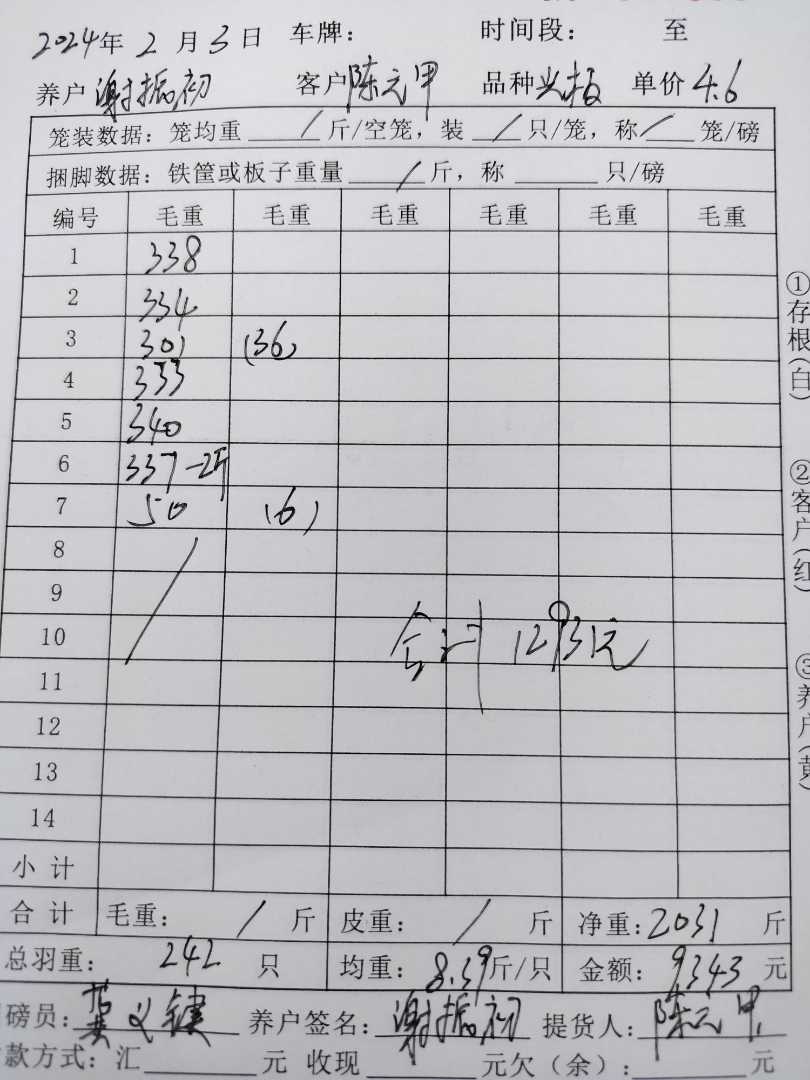 2024年 2 月 3 日 车牌： 时间段： 至
养户 谢振初 客户 陈元甲 品种 单价 4.6
笼装数据：笼均重 / 斤/空笼，装 / 只/笼，称 / 笼/磅
捆脚数据：铁筐或板子重量 / 斤，称 只/磅
编号 毛重 毛重 毛重 毛重 毛重 毛重
1 338
2 334
3 301 (36)
4 333
5 340
6 337-2斤
7 50 (6)
8
9
10 合计 12931元
11
12
13
14
小计
合计 毛重： / 斤 皮重： / 斤 净重：2031 斤
总羽重： 242 只 均重：8.39斤/只 金额：9343元
磅员：龚义键 养户签名：谢振初 提货人：陈元甲
款方式：汇 元 收现 元欠（余）： 元
①存根（白） ②客户（红） ③养户（黄）